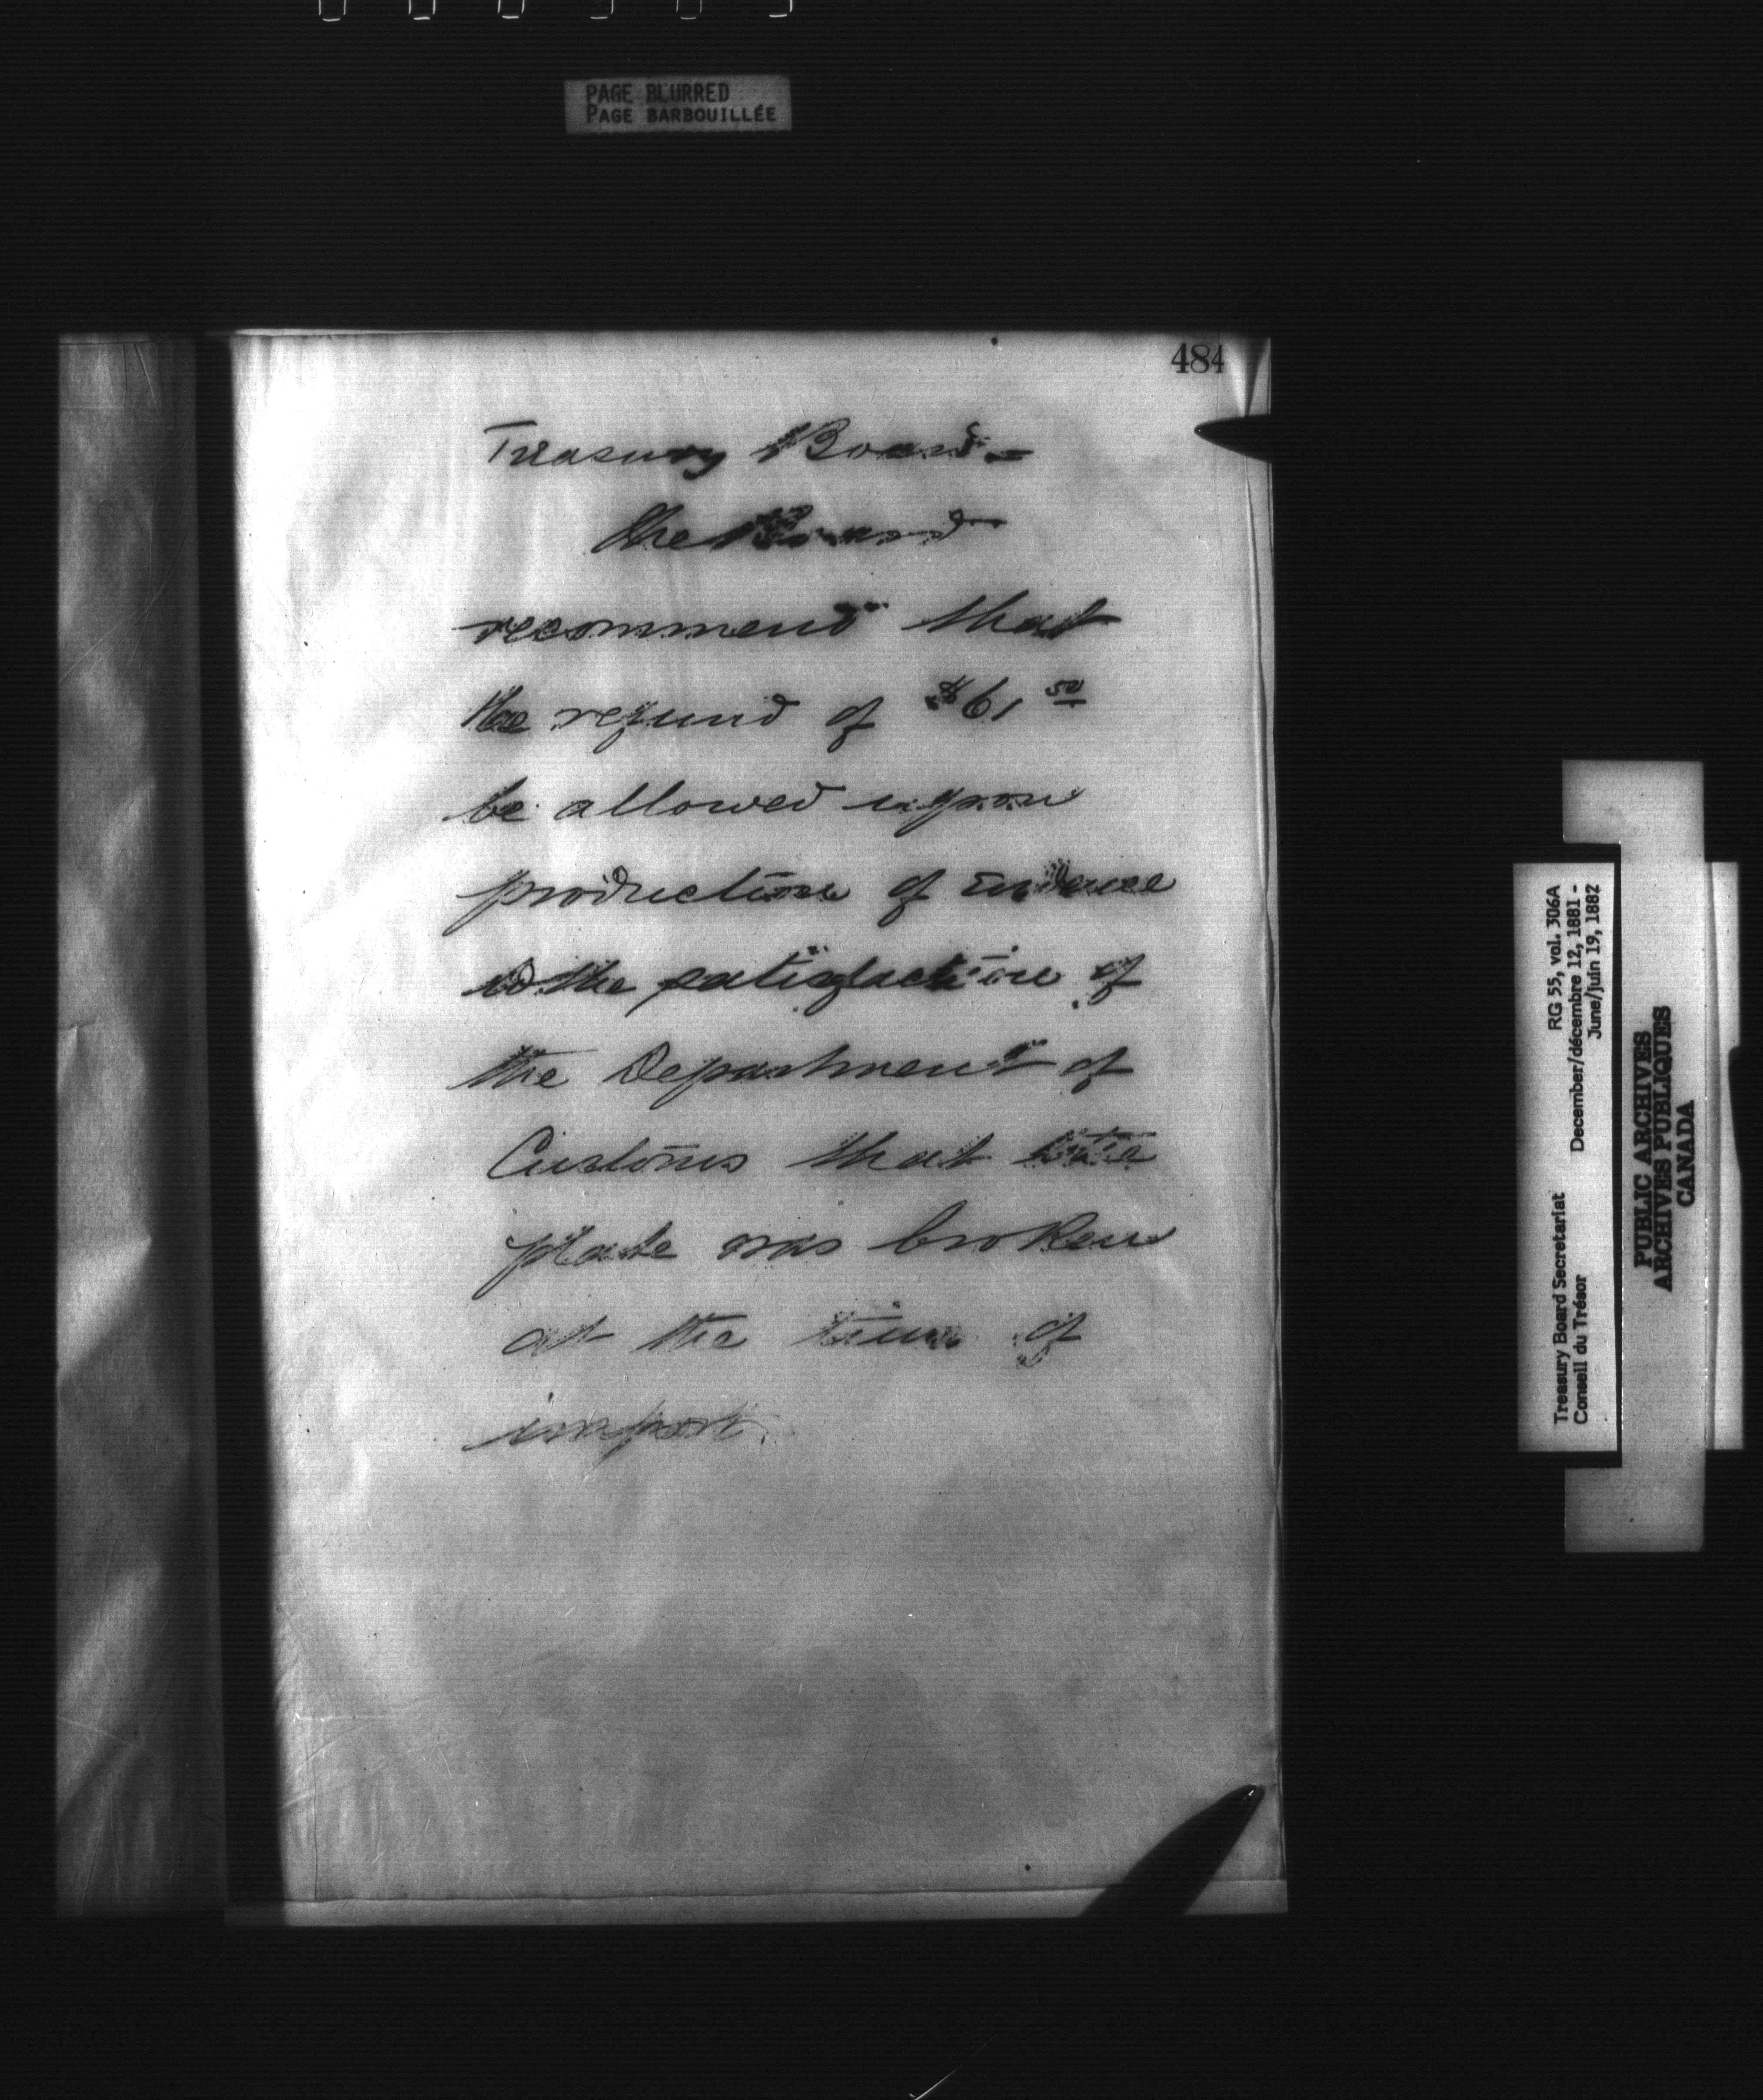 PAGE BLURRED
PAGE BARBOUILLÉE
484
Treasury Board =
the Board
recommend that
the refund of $61 50
be allowed upon
production of Evidence
to the satisfaction of
the Department of
Customs that the
plate was broken
at the time of
import.
Treasury Board Secretariat RG 55, vol. 306A
Conseil du Trésor December/décembre 12, 1881 -
June/juin 19, 1882
PUBLIC ARCHIVES
ARCHIVES PUBLIQUES
CANADA